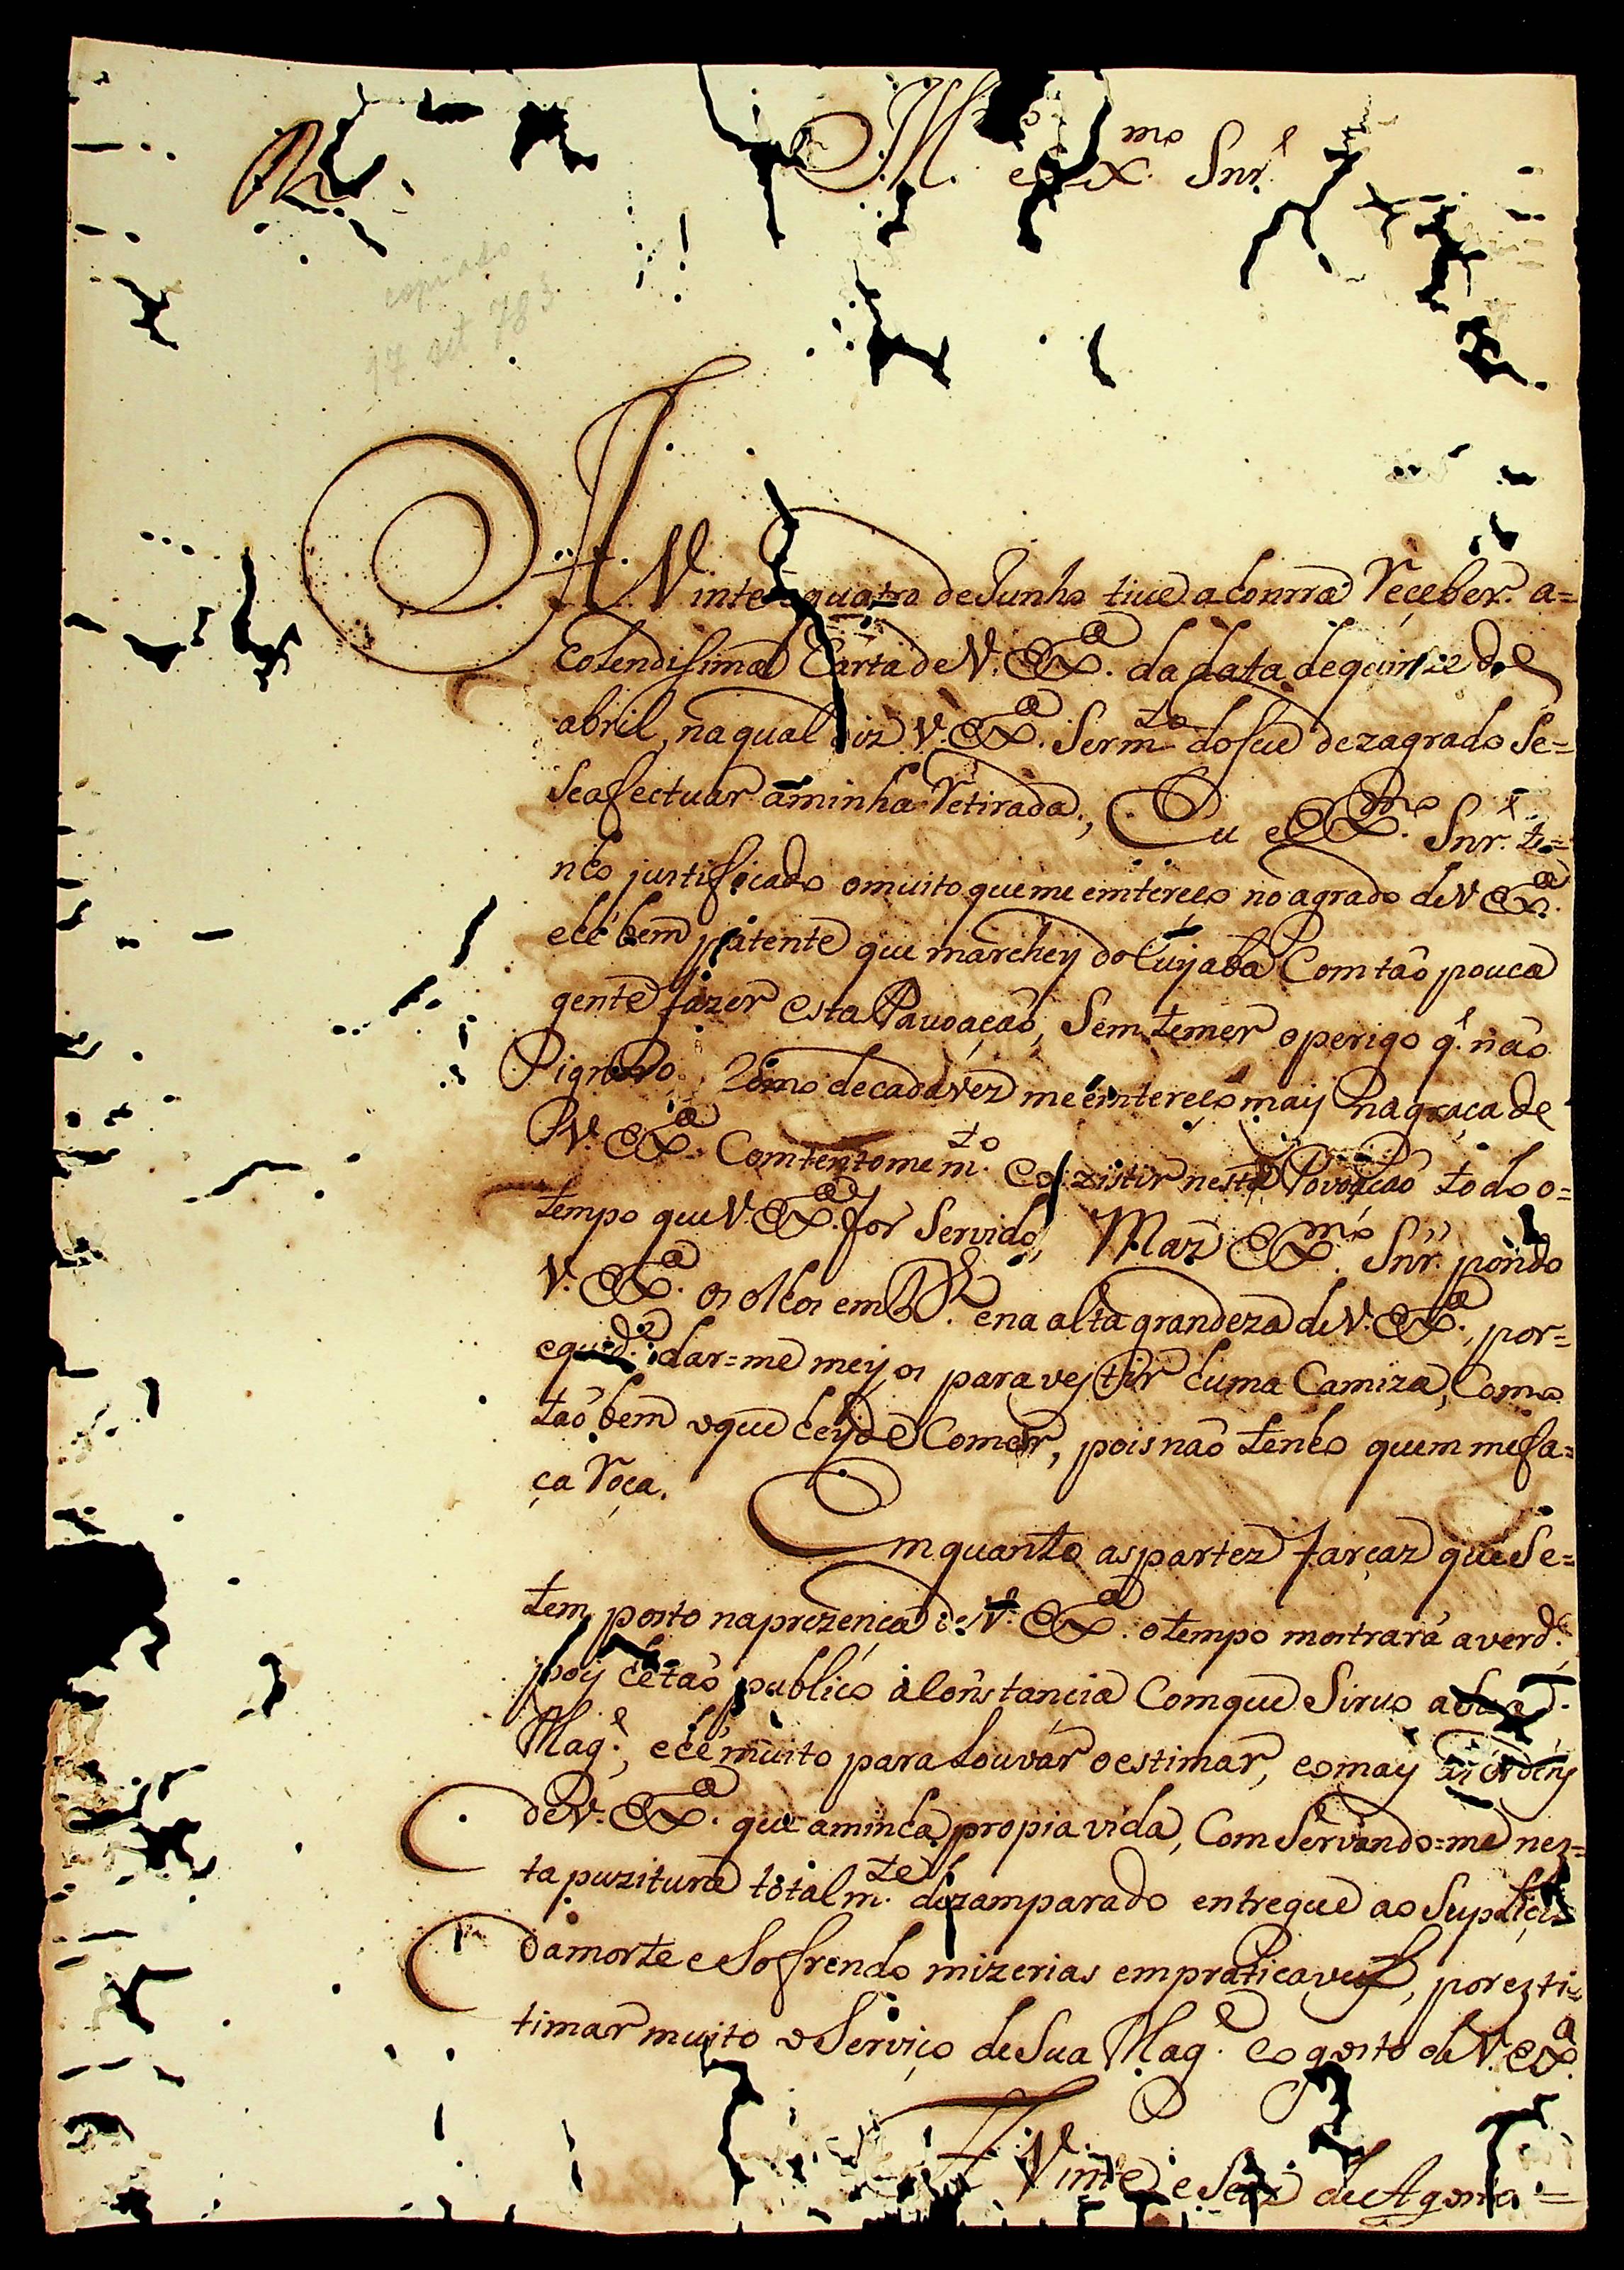 R.
Ill.mo e Ex.mo Snr.
copiado
17 set 783
A Vinte e quatro de Junho tive a honrra Reçeber a=
Colendisima Carta de V. Exa. da data de quinze de
abril, na qual diz V. Exa. Serm.to do seu dezagrado se=
se afectuar a minha Retirada, Eu Ex.mo Snr. te=
nho justificado o muito que me emtereço no agrado de V Exa.
e hé bem patente que marchey do Cuyabá Com tão pouca
gente fazer esta Pavoação, Sem temer o perigo q. não
Pignoro. Como de cada vez me emtereço may na graça de
V. Exa. Comtentome m.to Exzistir nesta Povoação todo o=
tempo que V. Exa. for Servido, Maz Ex.mo Snr. pondo
V. Exa. os olhos em D.s e na alta grandeza de V. Exa., por=
equid.e dar=me meyos para vestir huma Camiza, Como
tão bem o que hey de Comer, pois não tenho quem me fa=
ça Roça.
Emquanto as partez farçaz que se=
tem posto na prezença de V. Exa. o tempo mostrará a verd.e
poiz hé tão publico a Constançia Com que Sirvo a Sua
Mag.e, e hé muito para Louvar o estimar, eo may as ordeny
de V. Exa. que a minha propia vida, Com Servando=me nez=
ta puzitura total m.te dezamparado entregue ao Supliçio
da morte e Soffrendo mizerias empraticaveis, por ezti=
timar muito o Serviço de Sua Mag.e e o gosto de V. Exa.
A Vinte e Seiz de Agosto=